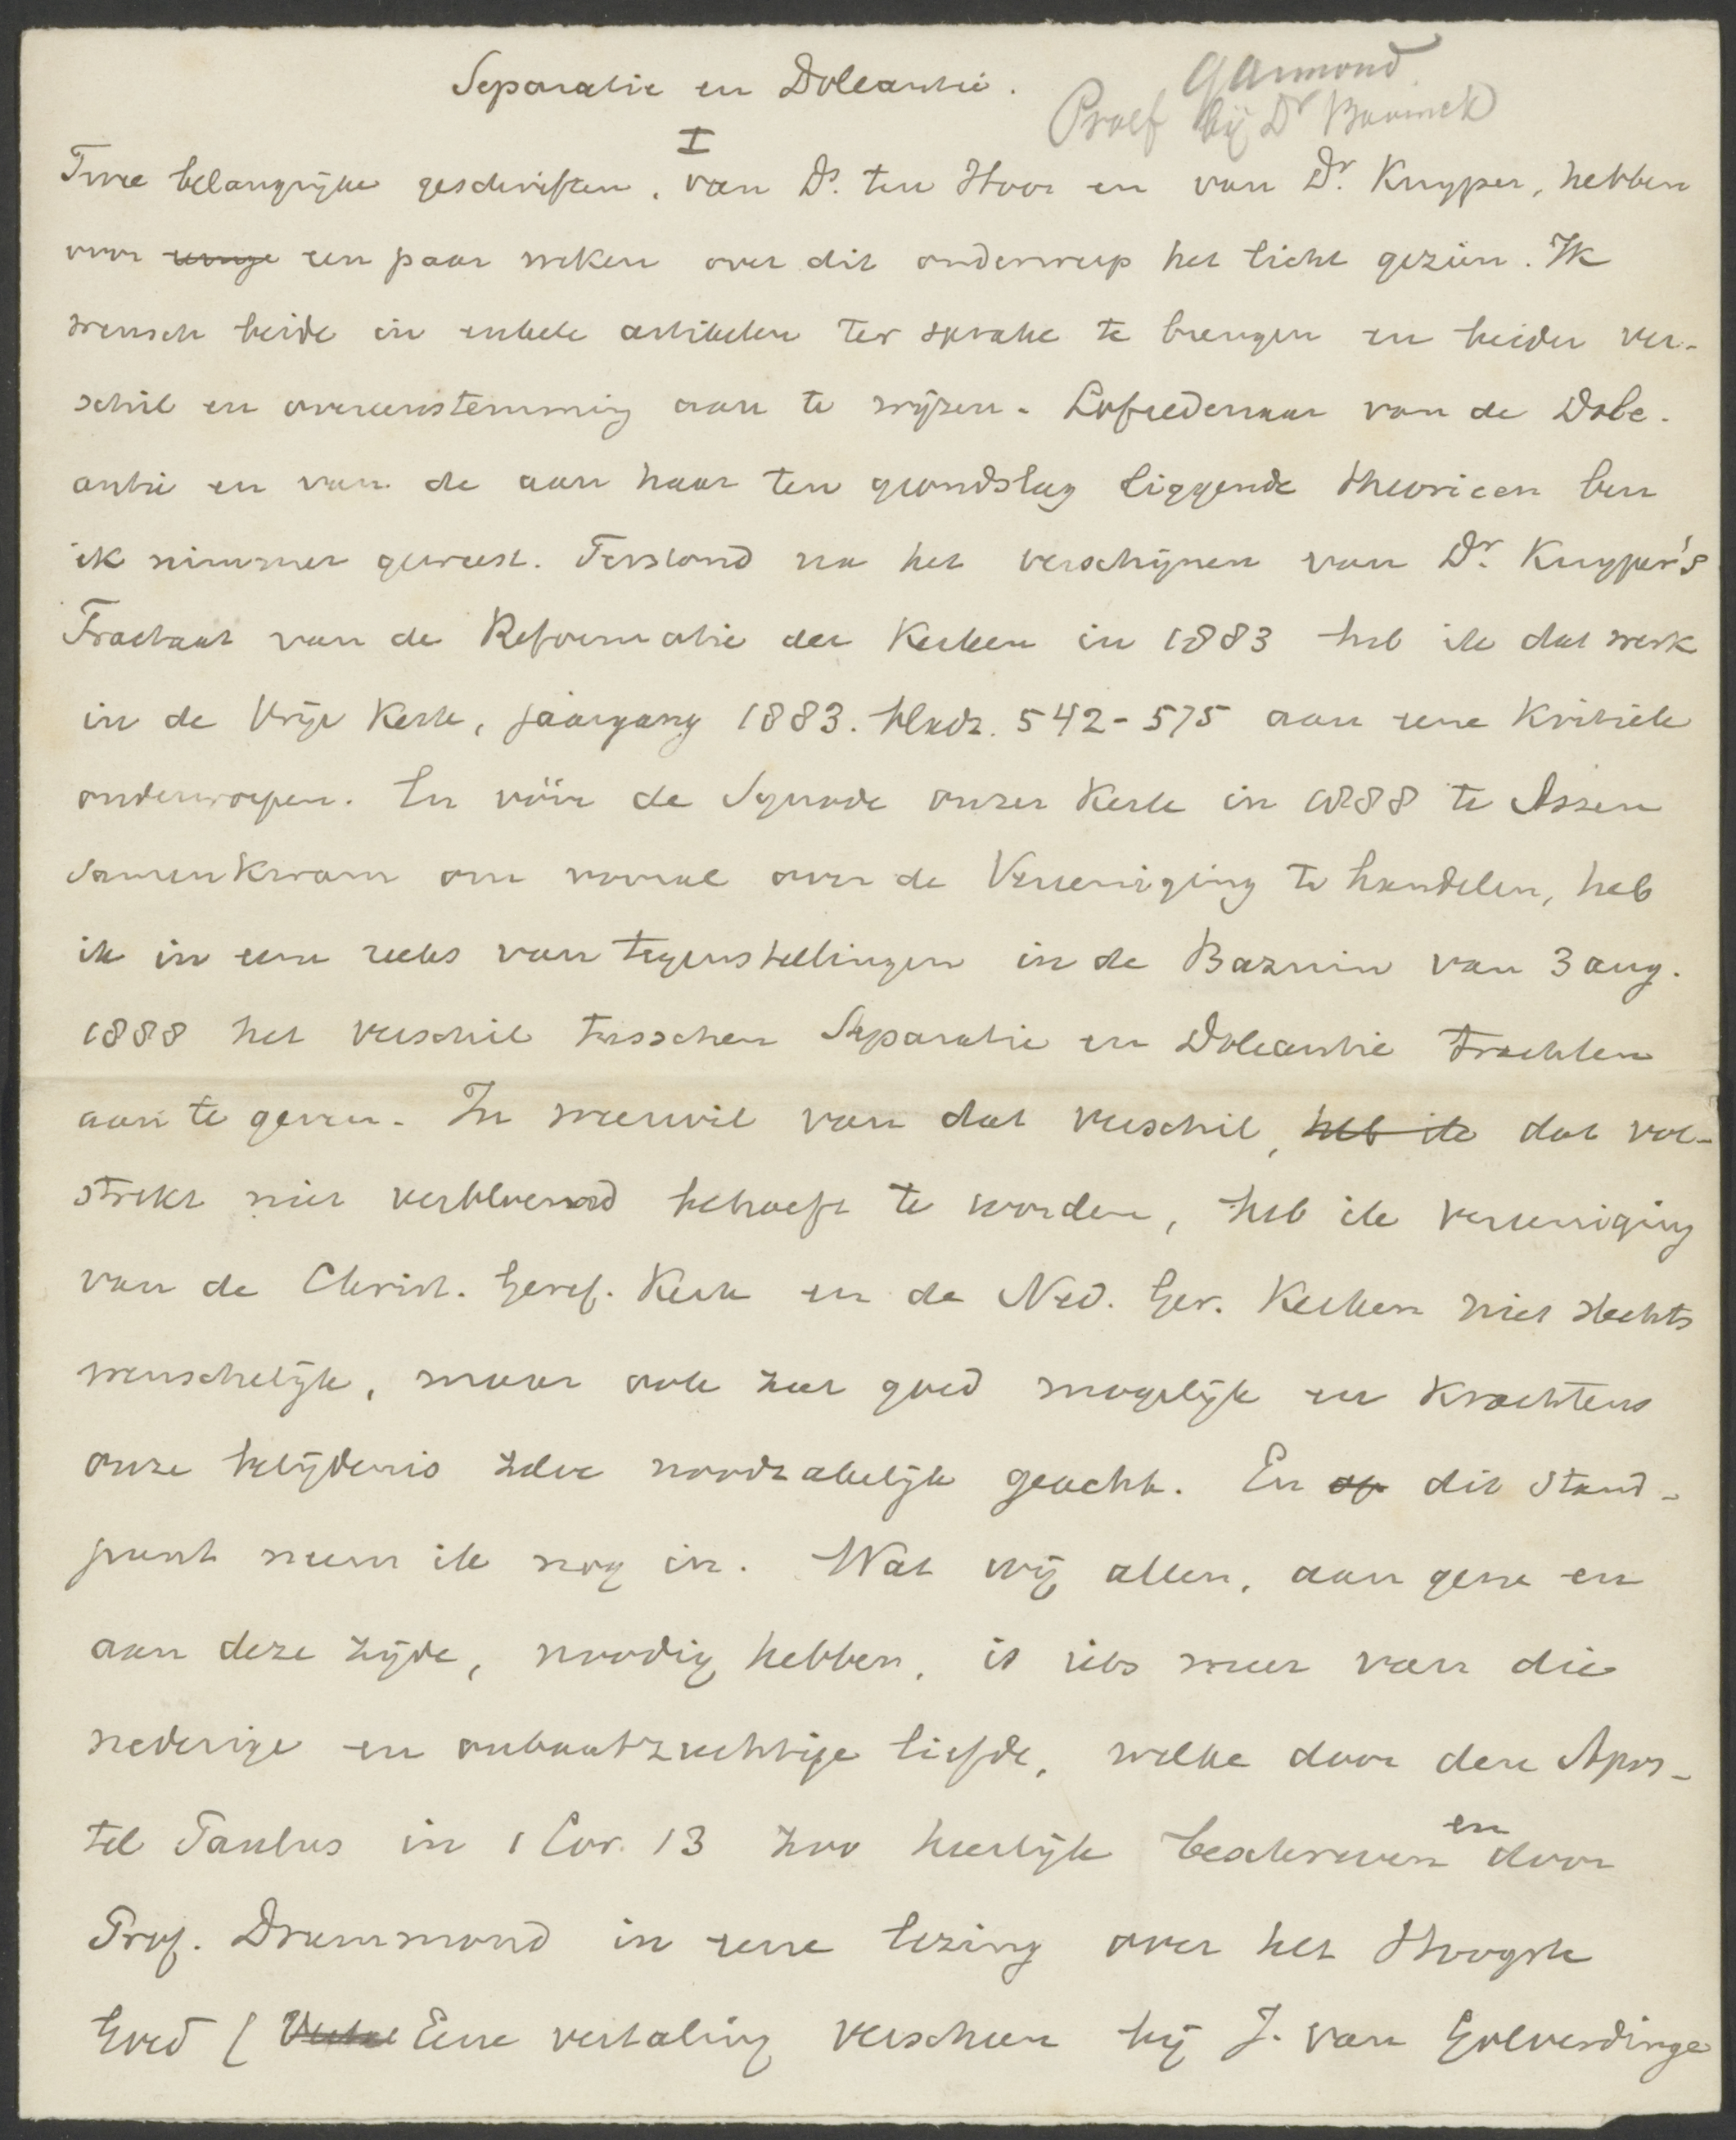 Separatie en Doleantie.
Garmond
Proef bij Dr Bavinck
I
Twee belangrijke geschriften, van Ds. ten Hoor en van Dr. Kuyper, hebben
voor eenige een paar weken over dit onderwerp het licht gezien. Ik
wensch beide in enkele artikelen ter sprake te brengen en beider ver-
schil en overeenstemming aan te wijzen. Lofredenaar van de Dole-
antie en van de aan haar ten grondslag liggende theorieen ben
ik nimmer geweest. Terstond na het verschijnen van Dr. Kuyper's
Tractaat van de Reformatie der Kerken in 1883 heb ik dat werk
in de Vrije Kerk, jaargang 1883. bladz. 542-575 aan eene kritiek
onderworpen. En vóór de Synode onzer Kerk in 1888 te Assen
samenkwam om vooral over de Vereeniging te handelen, heb
ik in eene reeks van tegenstellingen in de Bazuin van 3 aug.
1888 het verschil tusschen Separatie en Doleantie trachten
aan te geven. In weerwil van dat verschil, heb ik dat vol-
strekt niet verbloemd behoeft te worden, heb ik vereeniging
van de Christ. Geref. Kerk en de Ned. Ger. Kerken niet slechts
wenschelijk, maar ook zeer goed mogelijk en krachtens
onze belijdenis zelve noodzakelijk geacht. En op dit stand-
punt neem ik nog in. Wat wij allen, aan gene en
aan deze zijde, noodig hebben, is iets meer van die
nederige en onbaatzuchtige liefde, welke door den Apos-
tel Paulus in 1 Cor. 13 zoo heerlijk beschreven en door
Prof. Drummond in eene lezing over het Hoogste
Goed ( Eene vertaling verscheen bij J. van Golverdinge